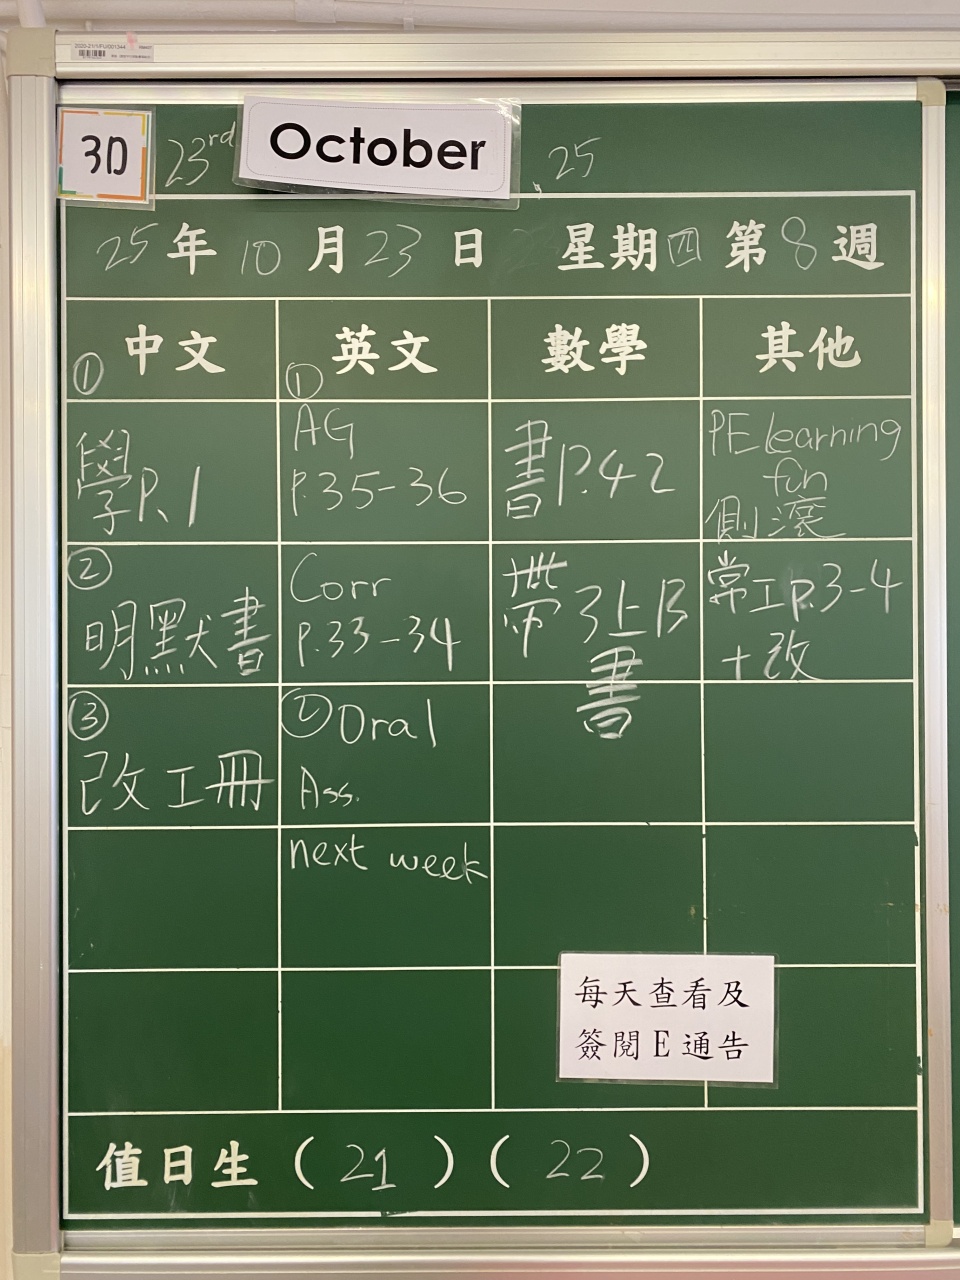 2020-21/1/FU/001344
3D
23rd
October
, 25
25年10月23日 星期四 第8週
中文
英文
數學
其他
①
學P.1
②
明默書
③
改工冊
①
AG
P.35-36
Corr
P.33-34
② Oral
Ass.
next week
書P.42
帶3上B
書
PE learning
fun
側滾
常工P.3-4
+改
每天查看及
簽閱E通告
值日生(21)(22)